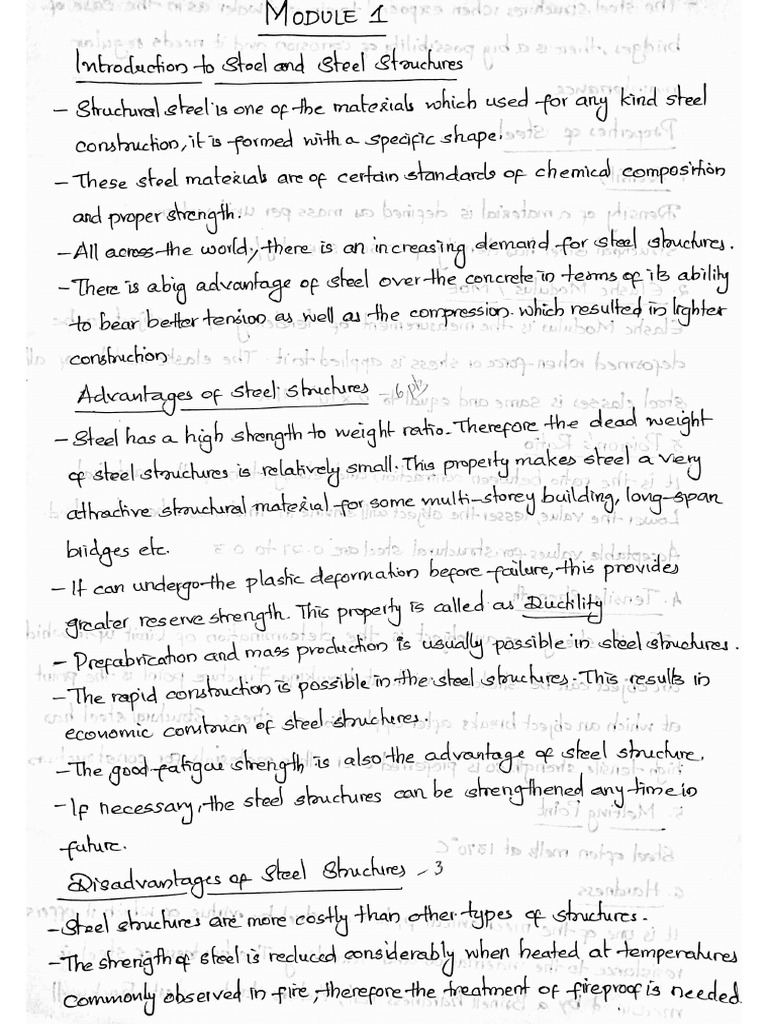 MODULE 1
Introduction to Steel and Steel Structures
- Structural steel is one of the materials which used for any kind steel
construction, it is formed with a specific shape.
- These steel materials are of certain standards of chemical composition
and proper strength.
- All across the world, there is an increasing demand for steel structures.
- There is a big advantage of steel over the concrete in terms of its ability
to bear better tension as well as the compression which resulted in lighter
construction
Advantages of Steel Structures - 6 pts
- Steel has a high strength to weight ratio. Therefore the dead weight
of steel structures is relatively small. This property makes steel a very
attractive structural material for some multi-storey building, long-span
bridges etc.
- It can undergo the plastic deformation before failure, this provides
greater reserve strength. This property is called as Ductility
- Prefabrication and mass production is usually possible in steel structures.
- The rapid construction is possible in the steel structures. This results in
economic constoucn of steel structures.
- The good fatigue strength is also the advantage of steel structure.
- If necessary, the steel structures can be strengthened any time in
future.
Disadvantages of Steel Structures - 3
- Steel structures are more costly than other types of structures.
- The strength of steel is reduced considerably when heated at temperatures
commonly observed in fire, therefore the treatment of fireproof is needed.